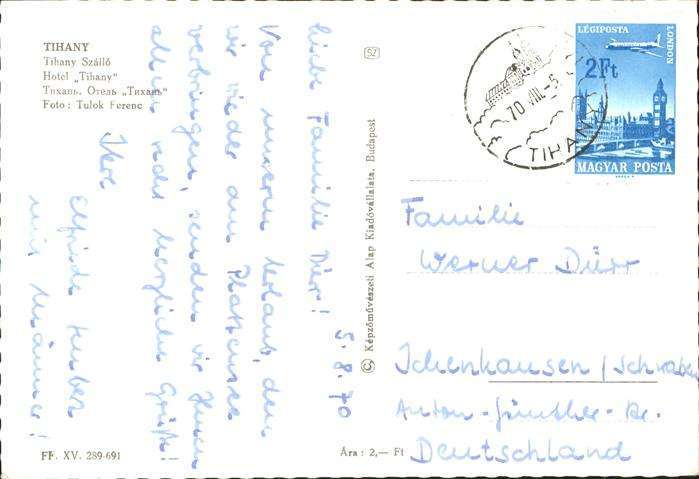 TIHANY
Tihany Szálló
Hotel „Tihany"
Тихань. Отель „Тихань"
Foto : Tulok Ferenc
SZ
LÉGIPOSTA
LONDON
2Ft
MAGYAR POSTA
70 VIII.-5
TIHANY
5.8.70
Liebe Familie Dürr!
Von unserem Urlaub, den
wir wieder am Plattensee
verbringen, senden wir Ihnen
allen recht herzliche Grüße!
Ihre
Elfriede Huber
mit Männer!
Familie
Werner Dürr
Ichenhausen/Schwaben
Anton-Günther-
Deutschland
© Képzőművészeti Alap Kiadóvállalata, Budapest
FF. XV. 289-691
Ára : 2,— Ft